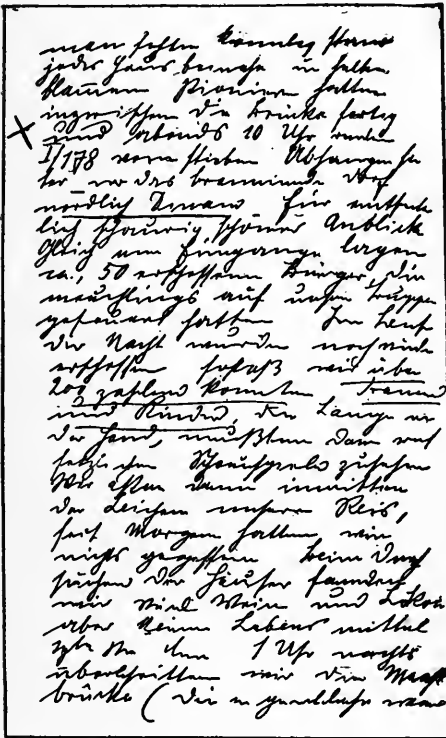 man sehen konnte stand
jedes Haus beinahe in hellen
Flammen Pioniere hatten
inzwischen die Brücke fertig
Und abends 10 Uhr
I/178 Abhang
das brennende Dorf
nördlich Dinant Ein entsetz
lich schaurig schöner Anblick
Gleich am Eingange lagen
ca. 50 erschossene Bürger, die
meuchlings auf unsre Truppen
gefeuert hatten Im Laufe
der Nacht wurden noch viele
erschossen sodaß wir über
200 zählen konnten Frauen
und Kinder, die Lampe in
der Hand, mußten dem ent
setzlichen Schauspiele zusehen
Wir aßen dann inmitten
der Leichen unsern Reis,
seit Morgen hatten wir
nichts gegessen Beim Durch
suchen der Häuser fanden
wir viel Wein und Likör
aber keine Lebensmittel
1 Uhr nachts
überschritten wir die Maas
brücke (die